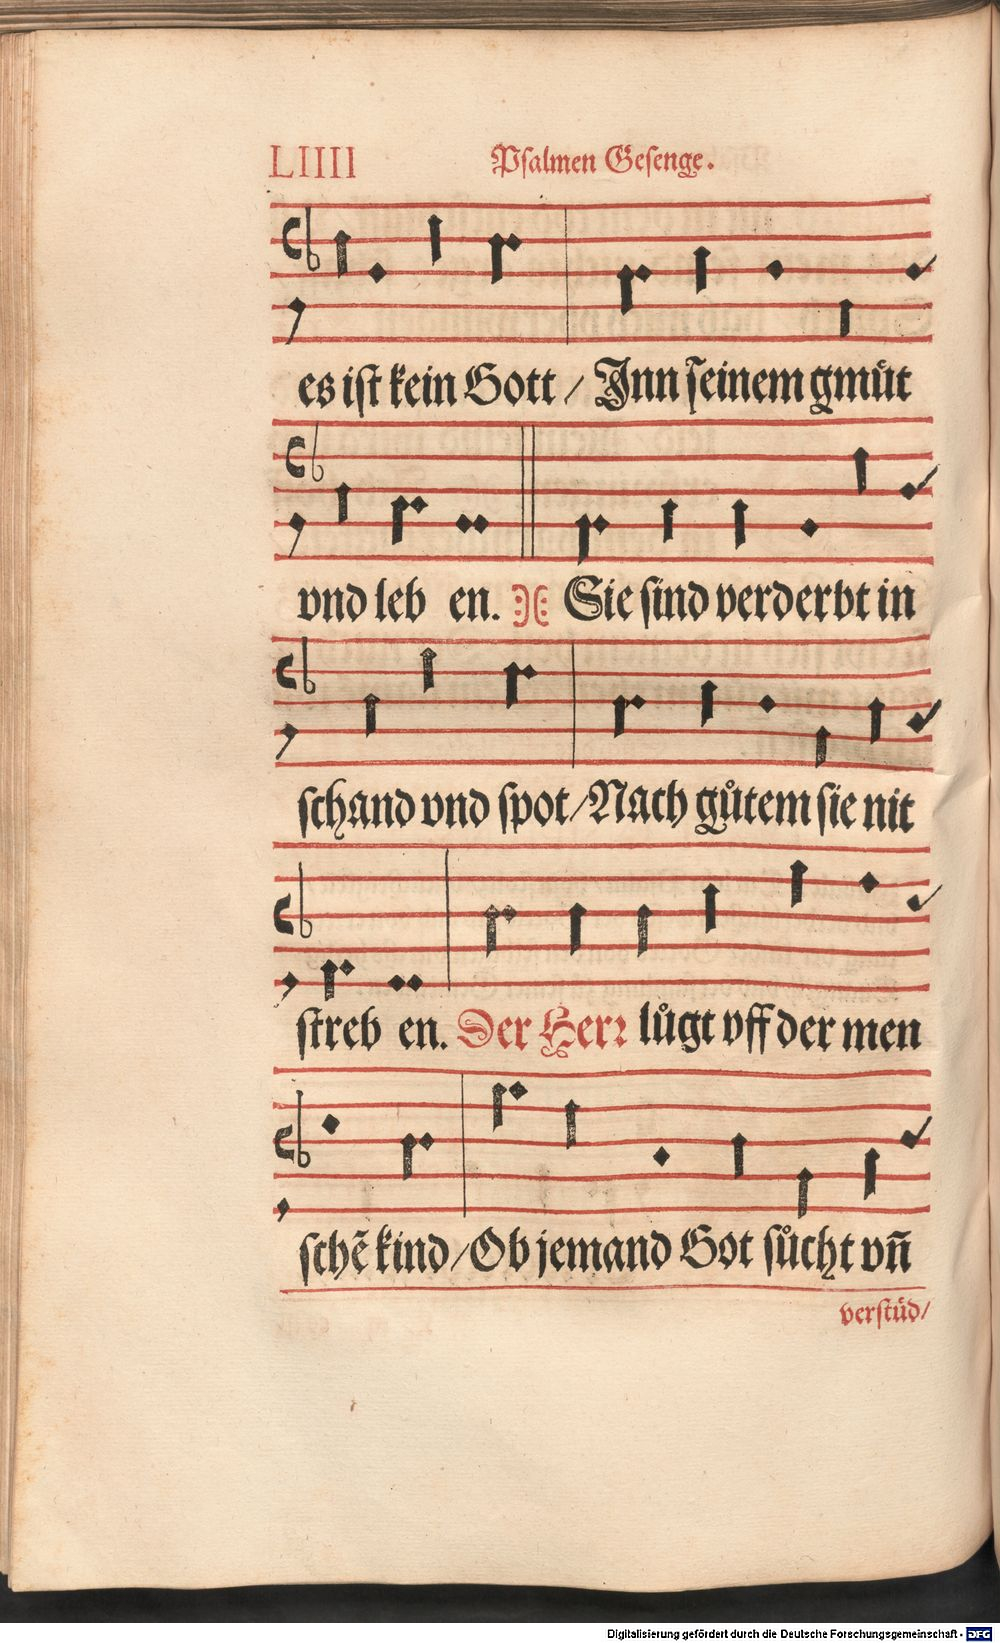 LIIII Psalmen Gesenge.
es ist kein Gott / Jnn seinem gmuͤt
vnd leb en. Sie sind verderbt in
schand vnd spot / Nach guͦtem sie nit
streb en. Der Herꝛ luͦgt vff der men
schẽ kind / Ob jemand Got suͦcht vñ
verstuͤd /
Digitalisierung gefördert durch die Deutsche Forschungsgemeinschaft - DFG